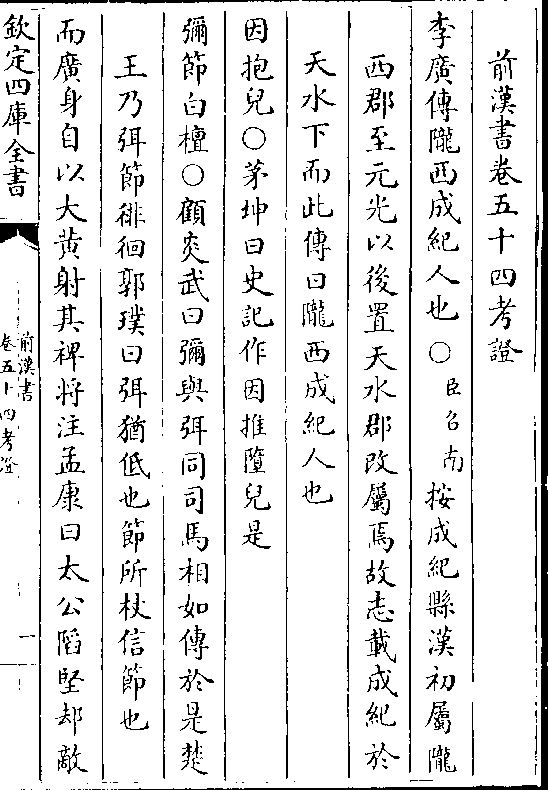 前漢書卷五十四考證
李廣傳隴西成紀人也○臣召南按成紀縣漢初屬隴
西郡至元光以後置天水郡改屬焉故志載成紀於
天水下而此傳曰隴西成紀人也
因抱兒○茅坤曰史記作因推墮兒是
彌節白檀○顧炎武曰彌與弭同司馬相如傳於是楚
王乃弭節徘徊郭璞曰弭猶低也節所杖信節也
而廣身自以大黃射其裨將注孟康曰太公䧟堅却敵
欽定四庫全書
前漢書
卷五十四考證
一